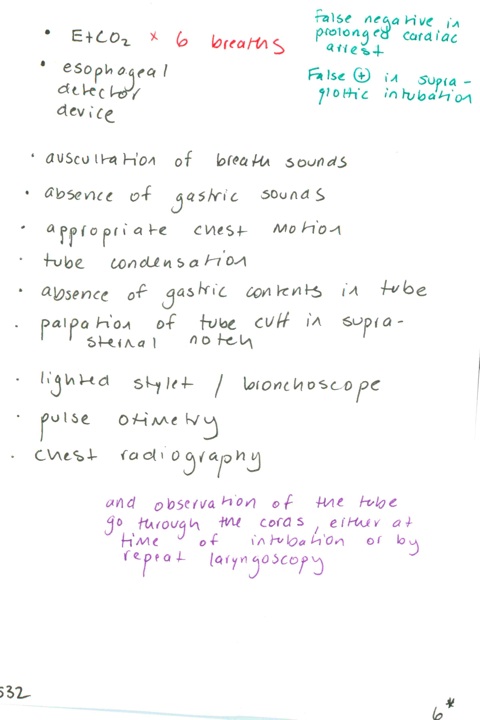 • EtCO2 × 6 breaths
False negative in
prolonged cardiac
arrest
False (+) in supra-
glottic intubation
• esophageal
detector
device
• auscultation of breath sounds
• absence of gastric sounds
• appropriate chest motion
• tube condensation
• absence of gastric contents in tube
• palpation of tube cuff in supra-
sternal notch
• lighted stylet / bronchoscope
• pulse oximetry
• chest radiography
and observation of the tube
go through the cords, either at
time of intubation or by
repeat laryngoscopy
532
6*